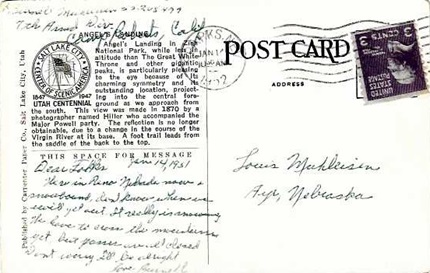 7th Arm'd Div.
Camp Roberts, Calif
ANGEL'S LANDING
Angel's Landing in Zion
National Park, while less in
altitude than The Great White
Throne and other gigantic
peaks, is particularly pleasing
to the eye because of its
charming symmetry and its
outstanding location, project-
ing into the central fore-
ground as we approach from
the south. This view was made in 1870 by
a photographer named Hiller who accompanied the
Major Powell party. The reflection is no longer
obtainable, due to a change in the course of the
Virgin River at its base. A foot trail leads from the
saddle of the back to the top.
SALT LAKE CITY
CENTER OF SCENIC AMERICA
1847 1947
UTAH CENTENNIAL
Published by Carpenter Paper Co., Salt Lake City, Utah
THIS SPACE FOR MESSAGE
Jan 14, 1951
Dear Folks
Here in Reno Nevada now &
snowbound, don't know when we
will get out. It really is snowing
We have to cross the mountains
yet but passes are closed
Don't worry I'll be alright
Love
POST CARD
ADDRESS
UNITED STATES POSTAGE
3 CENTS 3
Louis
Ayr, Nebraska